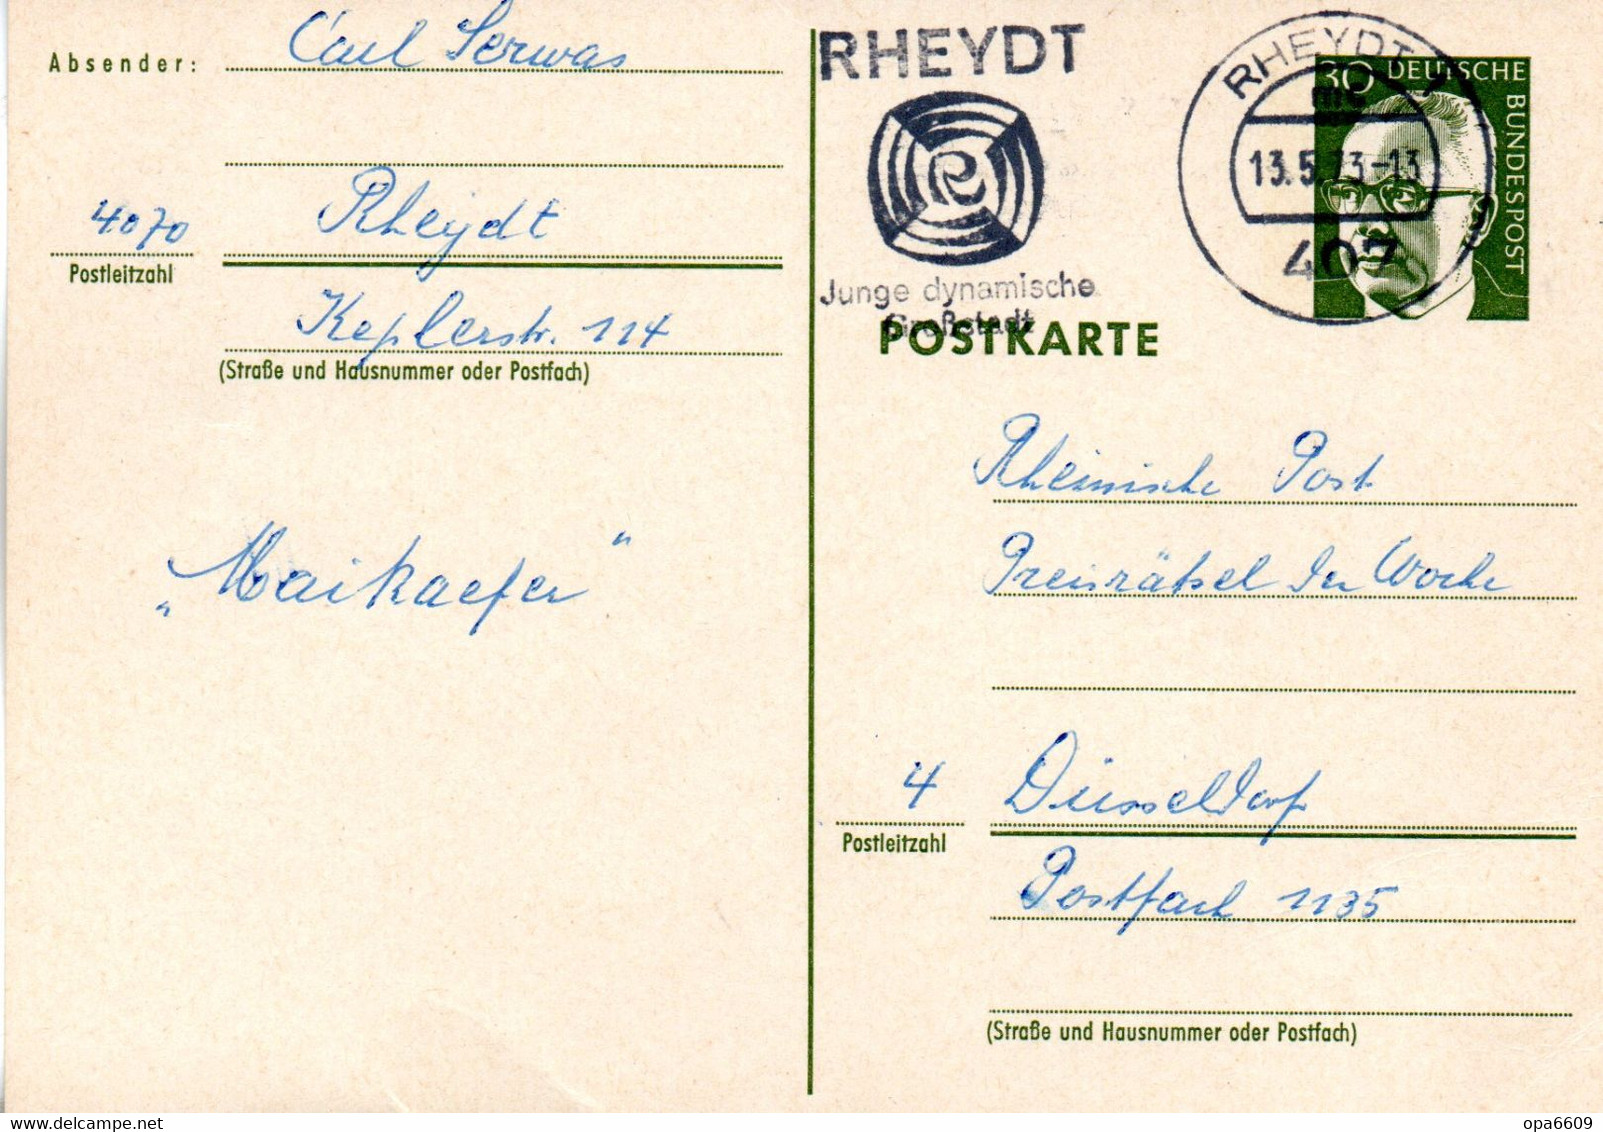 Absender: Carl Serwas
4070 Rheydt
Postleitzahl
Keplerstr. 114
(Straße und Hausnummer oder Postfach)
„Maikaefer"
RHEYDT
Junge dynamische
Großstadt
RHEYDT 1
mc
13.5.73-13
407
30 DEUTSCHE
BUNDESPOST
POSTKARTE
Rheinische Post
Preisrätsel der Woche
4 Düsseldorf
Postleitzahl
Postfach 1135
(Straße und Hausnummer oder Postfach)
www.delcampe.net
opa6609